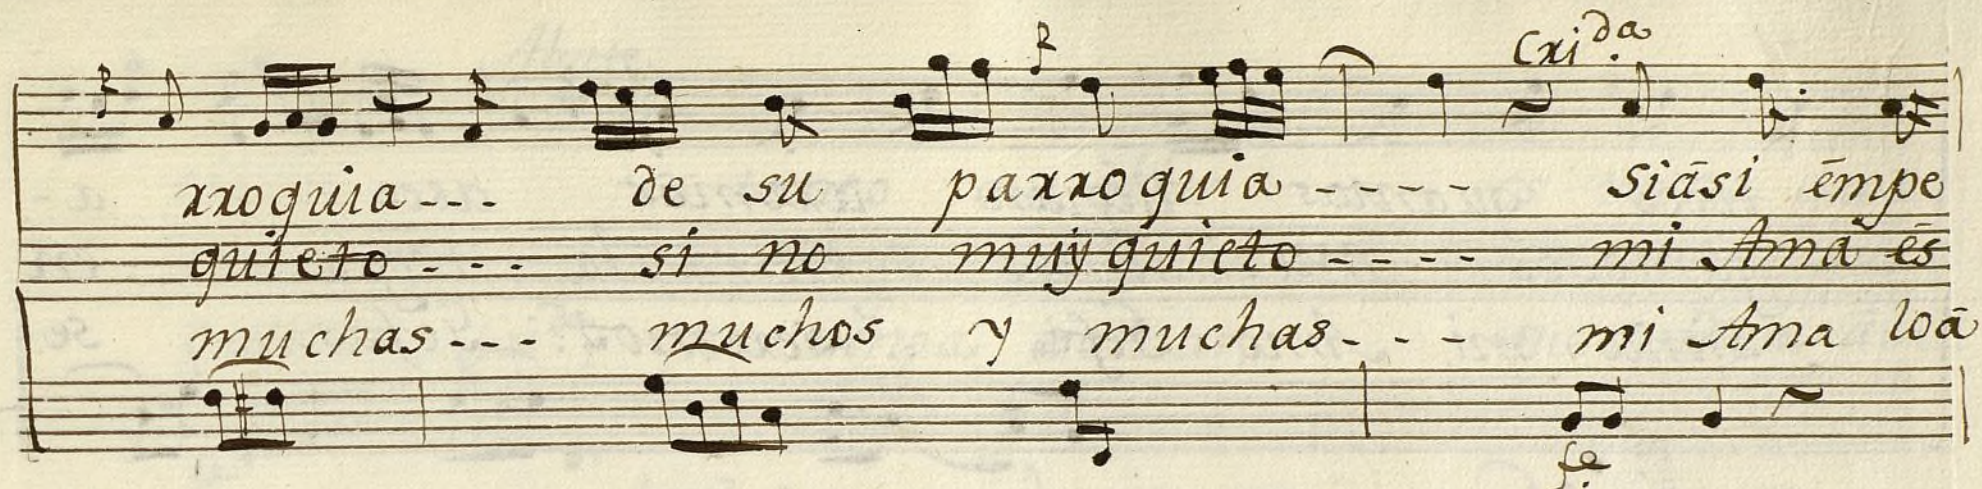 Cri.da
rroquia--- de su parroquia----- siāsi ēmpe
quieto--- si no muy quieto---- mi Amā ēs
muchas--- muchos y muchas---- mi Ama loā
fe